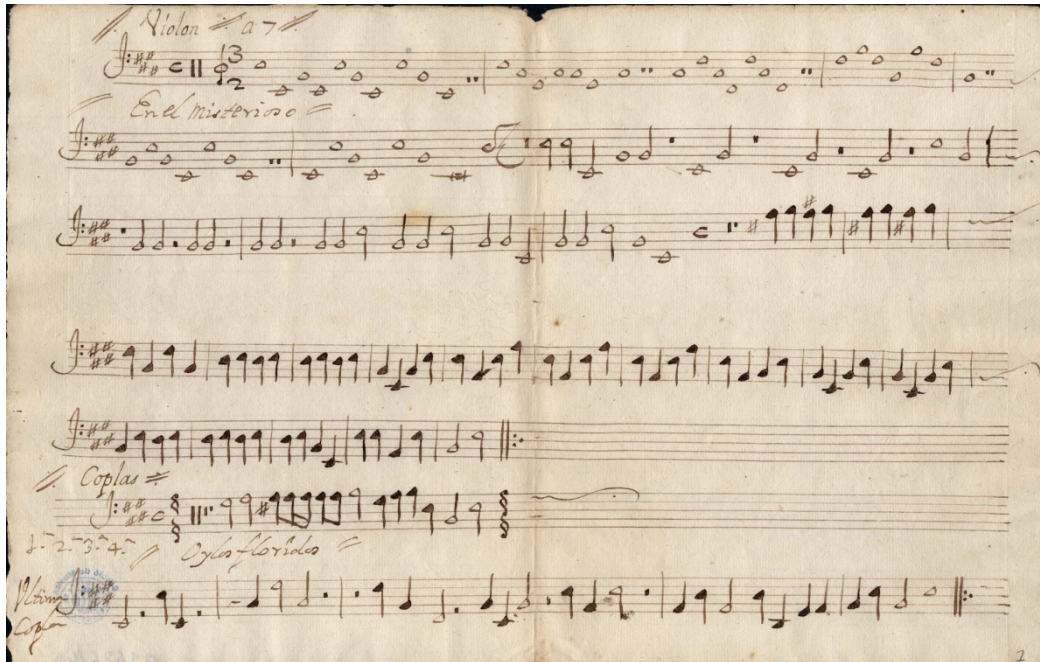 Violon a 7
3
2
En el misterioso
Coplas
1ª 2ª 3ª 4ª Oy los floridos
Vltima
Copla
2